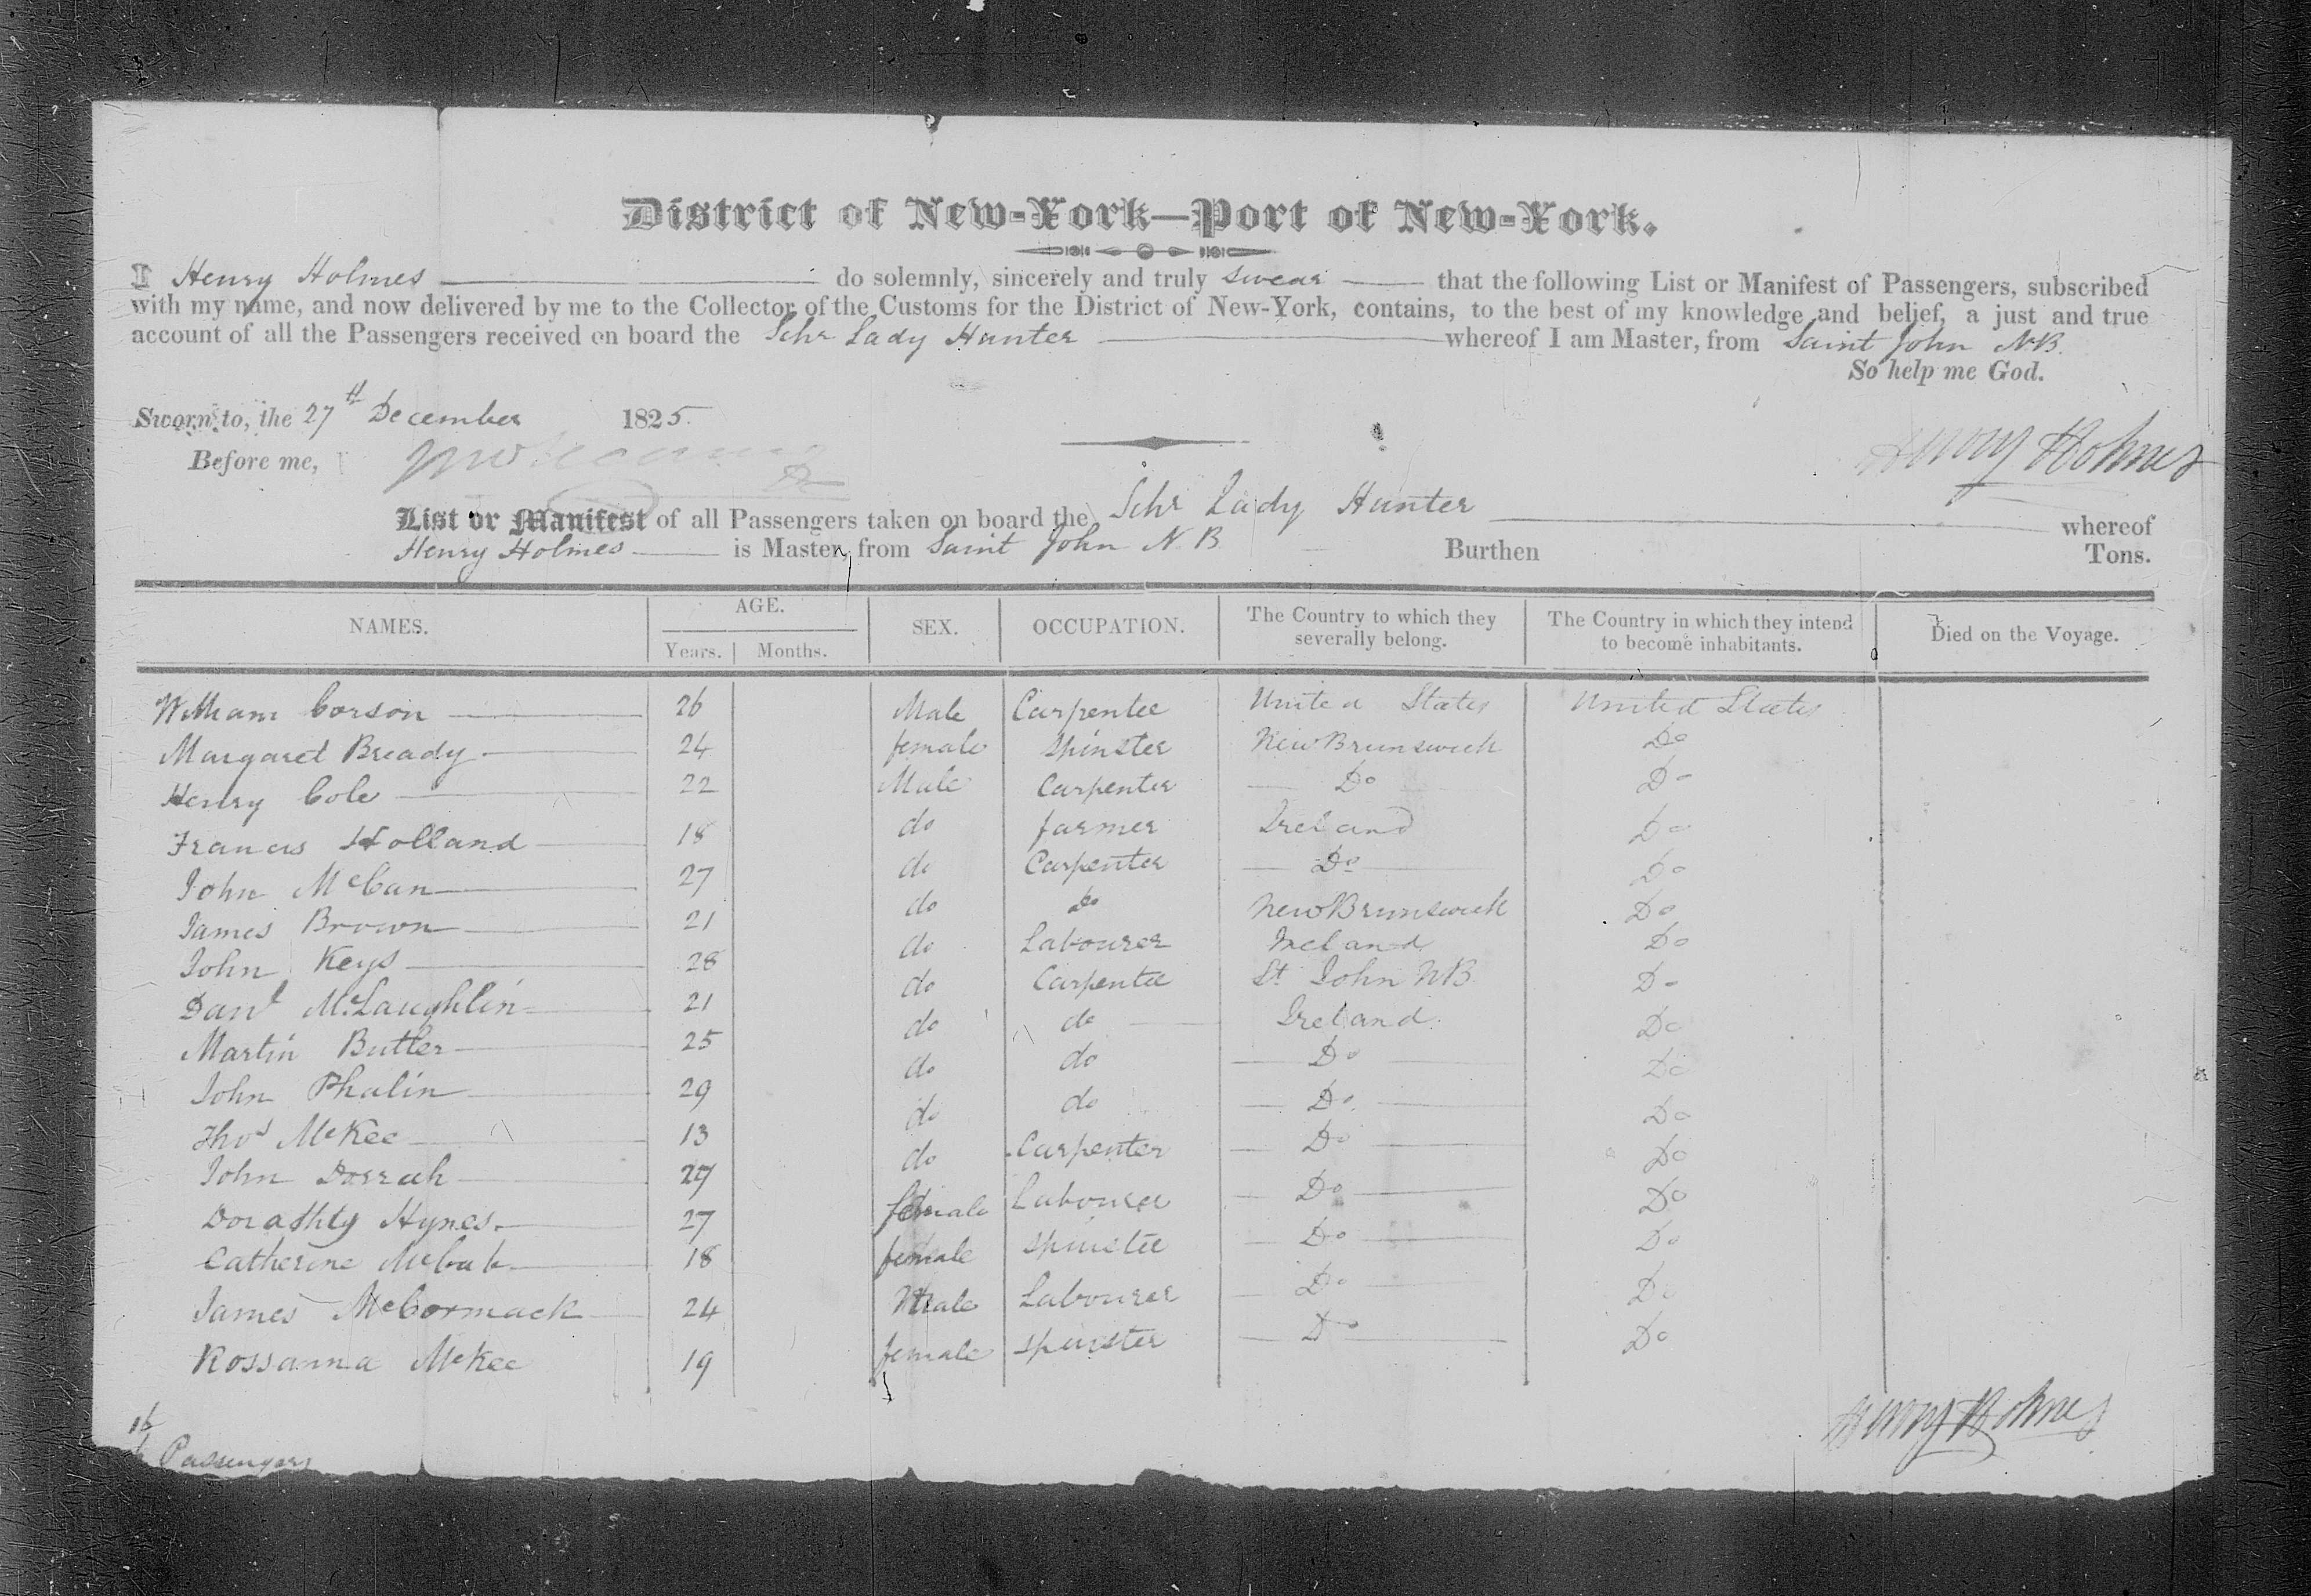 District of New-York—Port of New-York.
I Henry Holmes do solemnly, sincerely and truly swear that the following List or Manifest of Passengers, subscribed
with my name, and now delivered by me to the Collector of the Customs for the District of New-York, contains, to the best of my knowledge and belief, a just and true
account of all the Passengers received on board the Schr Lady Hunter whereof I am Master, from Saint John N.B.
So help me God.
Sworn to, the 27th December 1825.
Before me,
Henry Holmes
List or Manifest of all Passengers taken on board the Schr Lady Hunter whereof
Henry Holmes is Master, from Saint John N.B Burthen Tons.
NAMES. AGE. Years. Months. SEX. OCCUPATION. The Country to which they severally belong. The Country in which they intend to become inhabitants. Died on the Voyage.
William Corson 26 Male Carpenter United States United States
Margaret Bready 24 female Spinster New Brunswick Do
Henry Cole 22 Male Carpenter Do Do
Francis Holland 18 do farmer Ireland Do
John McCan 27 do Carpenter Do Do
James Brown 21 do do New Brunswick Do
John Keys 28 do Labourer Ireland Do
Danl McLaughlin 21 do Carpenter St John NB Do
Martin Butler 25 do do Ireland Do
John Phalin 29 do do Do Do
Thos McKee 13 do do Do Do
John Dorrah 27 do Carpenter Do Do
Dorathty Hynes 27 female Labourer Do Do
Catherine 18 female Spinster Do Do
James McCormack 24 Male Labourer Do Do
Rossanna McKee 19 female Spinster Do Do
Henry Holmes
16
Passengers